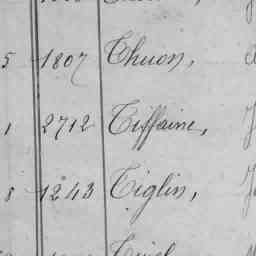 5 1807 Thuon,
1 2712 Tiffaine, J
8 1243 Tiglin, J